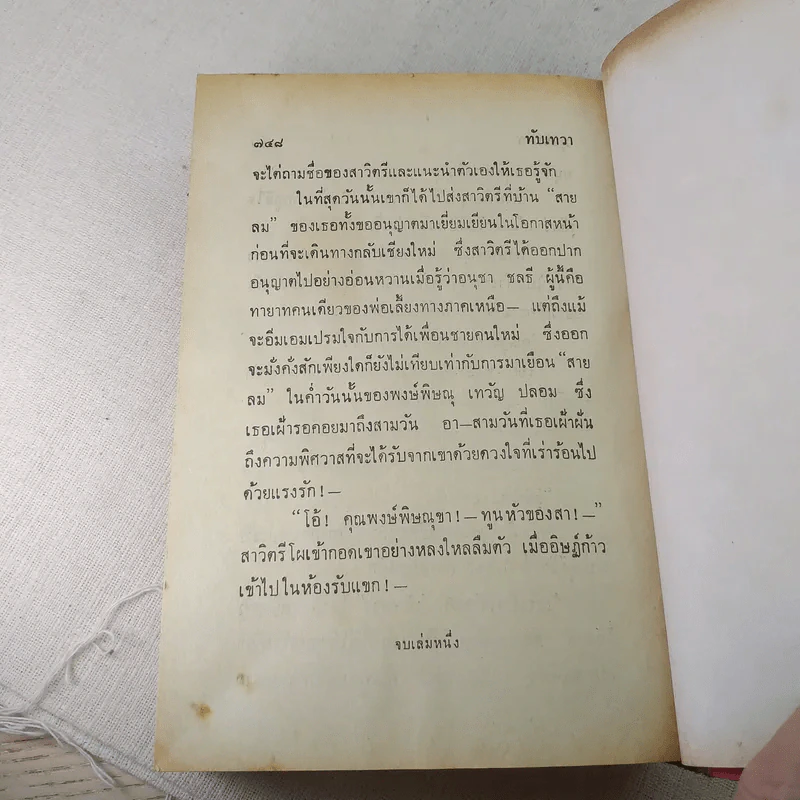 ๗๔๘ ทับเทวา
จะไต่ถามชื่อของสาวิตรีและแนะนำตัวเองให้เธอรู้จัก
ในที่สุดวันนั้นเขาก็ได้ไปส่งสาวิตรีที่บ้าน “สาย
ลม” ของเธอทั้งขออนุญาตมาเยี่ยมเยียนในโอกาสหน้า
ก่อนที่จะเดินทางกลับเชียงใหม่ ซึ่งสาวิตรีได้ออกปาก
อนุญาตไปอย่างอ่อนหวานเมื่อรู้ว่าอนุชา ชลธี ผู้นี้คือ
ทายาทคนเดียวของพ่อเลี้ยงทางภาคเหนือ— แต่ถึงแม้
จะอิ่มเอมเปรมใจกับการได้เพื่อนชายคนใหม่ ซึ่งออก
จะมั่งคั่งสักเพียงใดก็ยังไม่เทียบเท่ากับการมาเยือน “สาย
ลม” ในค่ำวันนั้นของพงษ์พิษณุ เทวัญ ปลอม ซึ่ง
เธอเฝ้ารอคอยมาถึงสามวัน อา—สามวันที่เธอเฝ้าฝัน
ถึงความพิศวาสที่จะได้รับจากเขาด้วยดวงใจที่เร่าร้อนไป
ด้วยแรงรัก!—
“โอ้! คุณพงษ์พิษณุขา!—ทูนหัวของสา!—”
สาวิตรีโผเข้ากอดเขาอย่างหลงใหลลืมตัว เมื่ออิษฎ์ก้าว
เข้าไปในห้องรับแขก!—
จบเล่มหนึ่ง